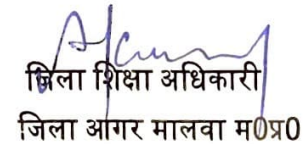 जिला शिक्षा अधिकारी
जिला आगर मालवा म0प्र0